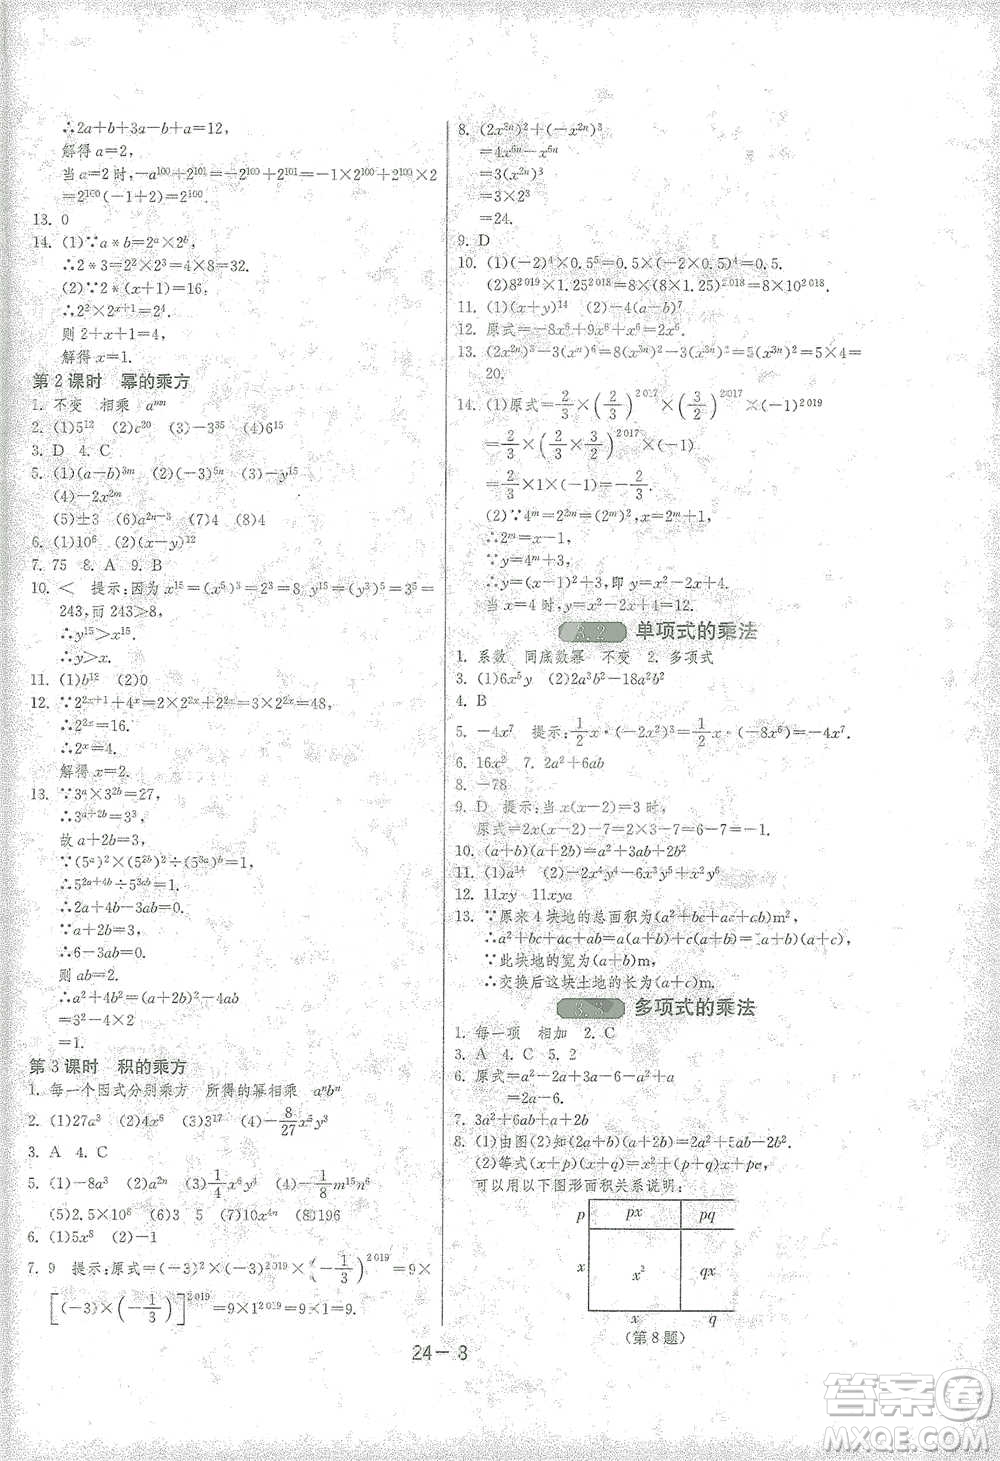 ∴2a+b+3a-b+a=12,
解得 a=2,
当 a=2 时,-a¹⁰⁰+2¹⁰¹=-2¹⁰⁰+2¹⁰¹=-1×2¹⁰⁰+2¹⁰⁰×2
=2¹⁰⁰(-1+2)=2¹⁰⁰.
13. 0
14. (1)∵a*b=2ᵃ×2ᵇ,
∴2*3=2²×2³=4×8=32.
(2)∵2*(x+1)=2⁴,
∴2²×2ˣ⁺¹=2⁴.
则 2+x+1=4,
解得 x=1.
第2课时 幂的乘方
1. 不变 相乘 aᵐⁿ
2. (1)5¹² (2)c²⁰ (3)-3³⁵ (4)6¹⁵
3. D 4. C
5. (1)(a-b)³ᵐ (2)(-3)⁵ⁿ (3)-y¹⁵
(4)-2x²ᵐ
(5)±3 (6)a²ⁿ⁻³ (7)4 (8)4
6. (1)10⁶ (2)(x-y)¹⁷
7. 75 8. A 9. B
10. < 提示:因为 x¹⁵=(x⁵)³=2³=8, y¹⁵=(y³)⁵=3⁵=
243,而 243>8,
∴y¹⁵>x¹⁵.
∴y>x.
11. (1)b¹² (2)0
12. ∵2²ˣ⁺¹+4ˣ=2×2²ˣ+2²ˣ=3×2²ˣ=48,
∴2²ˣ=16.
∴2ˣ=4.
解得 x=2.
13. ∵3ᵃ×3²ᵇ=27,
∴3ᵃ⁺²ᵇ=3³,
故 a+2b=3.
∵(5ᵃ)²×(5²ᵇ)²÷(5³ᵃ)ᵇ=1,
∴5²ᵃ⁺⁴ᵇ÷5³ᵃᵇ=1.
∴2a+4b-3ab=0.
∵a+2b=3,
∴6-3ab=0.
则 ab=2.
∴a²+4b²=(a+2b)²-4ab
=3²-4×2
=1.
第3课时 积的乘方
1. 每一个因式分别乘方 所得的幂相乘 aⁿbⁿ
2. (1)27a³ (2)4x⁶ (3)2¹⁷ (4)-8/27x⁵y³
3. A 4. C
5. (1)-8a³ (2)a²ⁿ (3)1/4x⁶y⁴ (4)-1/8m¹⁵n
(5)2.5×10⁶ (6)3 5 (7)10x⁴ⁿ (8)196
6. (1)5x⁸ (2)-1
7. 9 提示:原式=(-3)²×(-3)²⁰¹⁹×(-1/3)²⁰¹⁹=9×
[(-3)×(-1/3)]²⁰¹⁹=9×1²⁰¹⁹=9×1=9.
8. (2x²ⁿ)²+(-x²ⁿ)³
=4x⁶ⁿ-x⁶ⁿ
=3(x²ⁿ)³
=3×2³
=24.
9. D
10. (1)(-2)⁴×0.5⁵=0.5×(-2×0.5)⁴=0.5.
(2)8²⁰¹⁹×1.25²⁰¹⁸=8×(8×1.25)²⁰¹⁸=8×10²⁰¹⁸.
11. (1)(x+y)¹⁴ (2)-4(a-b)⁷
12. 原式=-8x⁶+9x⁶+x⁶=2x⁶.
13. (2x²ⁿ)³-3(x³ⁿ)²=8x⁶ⁿ-3x⁶ⁿ=5(x³ⁿ)²=5×4=
20.
14. (1)原式=2/3×(2/3)²⁰¹⁷×(3/2)²⁰¹⁷×(-1)²⁰¹⁹
=2/3×(2/3×3/2)²⁰¹⁷×(-1)
=2/3×1×(-1)=-2/3.
(2)∵4ᵐ=2²ᵐ=(2ᵐ)²,x=2ᵐ+1,
∴2ᵐ=x-1.
∵y=4ᵐ+3,
∴y=(x-1)²+3,即 y=x²-2x+4.
当 x=4 时,y=4²-2×4+4=12.
3.2 单项式的乘法
1. 系数 同底数幂 不变 2. 多项式
3. (1)6x⁵y (2)2a³b²-18a²b²
4. B
5. -4x⁷ 提示:1/2x·(-2x²)³=1/2x·(-8x⁶)=-4x⁷.
6. 16x² 7. 2a²+6ab
8. -78
9. D 提示:当 x(x-2)=3 时,
原式=2x(x-2)-7=2×3-7=6-7=-1.
10. (a+b)(a+2b)=a²+3ab+2b²
11. (1)a¹⁴ (2)-2x⁶y³+6x³y⁵+8x²y³
12. 11xy 11xya
13. ∵原来 4 块地的总面积为(a²+bc+ac+ab)m²,
∴a²+bc+ac+ab=a(a+b)+c(a+b)=(a+c)(a+b).
∵此块地的宽为(a+b)m,
∴交换后这块土地的长为(a+c)m.
3.3 多项式的乘法
1. 每一项 相加 2. C
3. A 4. C 5. 2
6. 原式=a²-2a-(a²-4a+2a-8)... 
=2a-6.
7. 3a²+6ab+a+2b
8. (1)由图(2)知(2a+b)(a+2b)=2a²+5ab+2b².
(2)等式(x+p)(x+q)=x²+px+qx+pq,
可以用以下图形面积关系说明:
p px pq
x x² qx
x q
(第8题)
24-8
答案圈
MXQE.COM